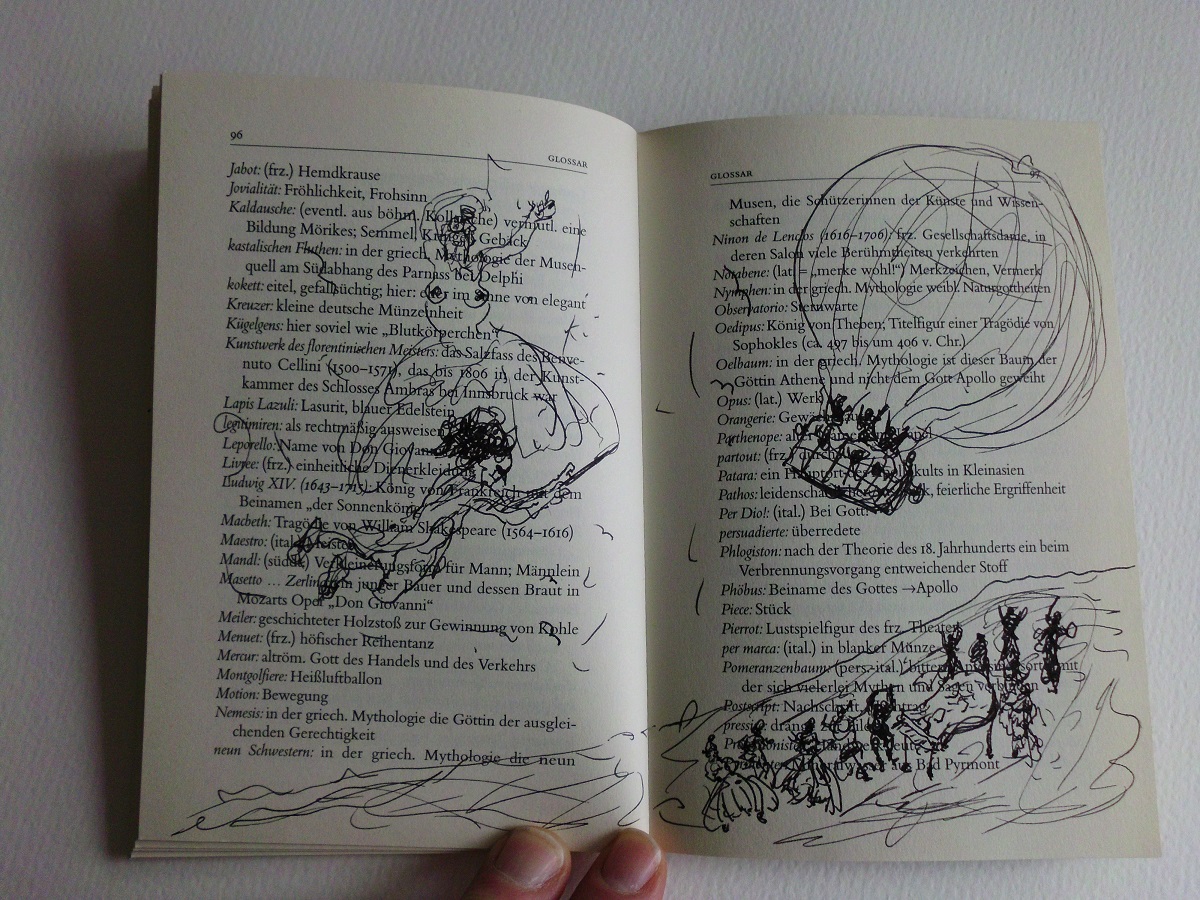 96
GLOSSAR
Jabot: (frz.) Hemdkrause
Jovialität: Fröhlichkeit, Frohsinn
Kaldausche: (eventl. aus böhm. Kollatsche) vermutl. eine
Bildung Mörikes; Semmel, Kringel, Gebäck
kastalischen Fluthen: in der griech. Mythologie der Musen-
quell am Südabhang des Parnass bei Delphi
kokett: eitel, gefallsüchtig; hier: eher im Sinne von elegant
Kreuzer: kleine deutsche Münzeinheit
Kügelgens: hier soviel wie „Blutkörperchen“
Kunstwerk des florentinischen Meisters: das Salzfass des Benve-
nuto Cellini (1500–1571), das bis 1806 in der Kunst-
kammer des Schlosses Ambras bei Innsbruck war
Lapis Lazuli: Lasurit, blauer Edelstein
legitimiren: als rechtmäßig ausweisen
Leporello: Name von Don Giovannis
Livree: (frz.) einheitliche Dienerkleidung
Ludwig XIV. (1643–1715): König von Frankreich mit dem
Beinamen „der Sonnenkönig“
Macbeth: Tragödie von William Shakespeare (1564–1616)
Maestro: (ital.) Meister
Mandl: (süddt.) Verkleinerungsform für Mann; Männlein
Masetto … Zerlina: ein junger Bauer und dessen Braut in
Mozarts Oper „Don Giovanni“
Meiler: geschichteter Holzstoß zur Gewinnung von Kohle
Menuet: (frz.) höfischer Reihentanz
Mercur: altröm. Gott des Handels und des Verkehrs
Montgolfiere: Heißluftballon
Motion: Bewegung
Nemesis: in der griech. Mythologie die Göttin der ausglei-
chenden Gerechtigkeit
neun Schwestern: in der griech. Mythologie die neun
GLOSSAR
97
Musen, die Schützerinnen der Künste und Wissen-
schaften
Ninon de Lenclos (1616–1706): frz. Gesellschaftsdame, in
deren Salon viele Berühmtheiten verkehrten
Notabene: (lat. = „merke wohl!“) Merkzeichen, Vermerk
Nymphen: in der griech. Mythologie weibl. Naturgottheiten
Observatorio: Sternwarte
Oedipus: König von Theben; Titelfigur einer Tragödie von
Sophokles (ca. 497 bis um 406 v. Chr.)
Oelbaum: in der griech. Mythologie ist dieser Baum der
Göttin Athene und nicht dem Gott Apollo geweiht
Opus: (lat.) Werk
Orangerie: Gewächshaus
Parthenope: alter Name von Neapel
partout: (frz.) durchaus
Patara: ein Hauptort des Apollokults in Kleinasien
Pathos: leidenschaftlicher feierliche Ergriffenheit
Per Dio!: (ital.) Bei Gott!
persuadierte: überredete
Phlogiston: nach der Theorie des 18. Jahrhunderts ein beim
Verbrennungsvorgang entweichender Stoff
Phöbus: Beiname des Gottes →Apollo
Piece: Stück
Pierrot: Lustspielfigur des frz. Theaters
per marca: (ital.) in blanker Münze
Pomeranzenbaum: (pers.-ital.) mit
der sich vielerlei Mythen und Sagen verbinden
Postscript: Nachschrift, Nachtrag
aus Bad Pyrmont